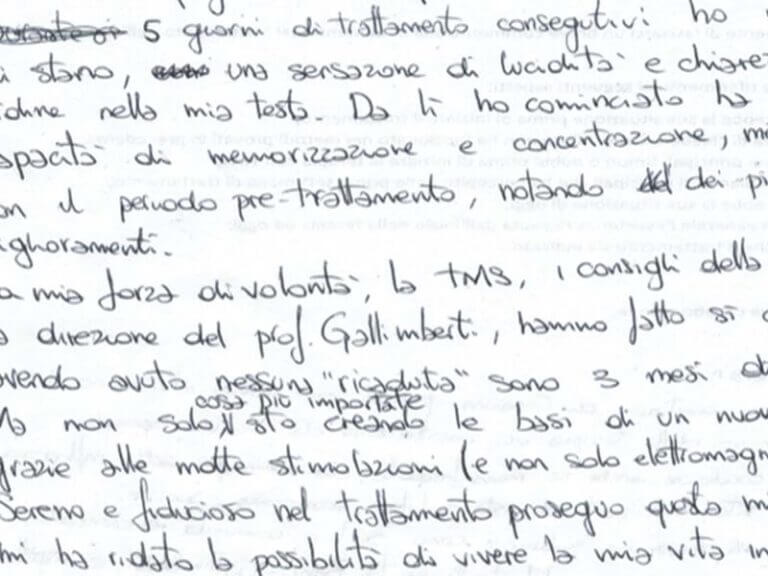 5 giorni di trattamento consegutivi ho
strano, una sensazione di lucidità e chiarez
idine nella mia testa. Da lì ho cominciato ha
apacità di memorizzazione e concentrazione, me
on il periodo pre-trattamento, notando dei pi
iglioramenti.
a mia forza di volontà, la TMS, i consigli della
a direzione del prof. Gallimberti, hanno fatto sì c
vendo avuto nessuna "ricaduta" sono 3 mesi d
cosa più importate
Ma non solo, sto creando le basi di un nuov
grazie alle molte stimolazioni (e non solo elettromagn
Sereno e fiducioso nel trattamento proseguo questa mi
mi ha ridato la possibilità di vivere la mia vita in